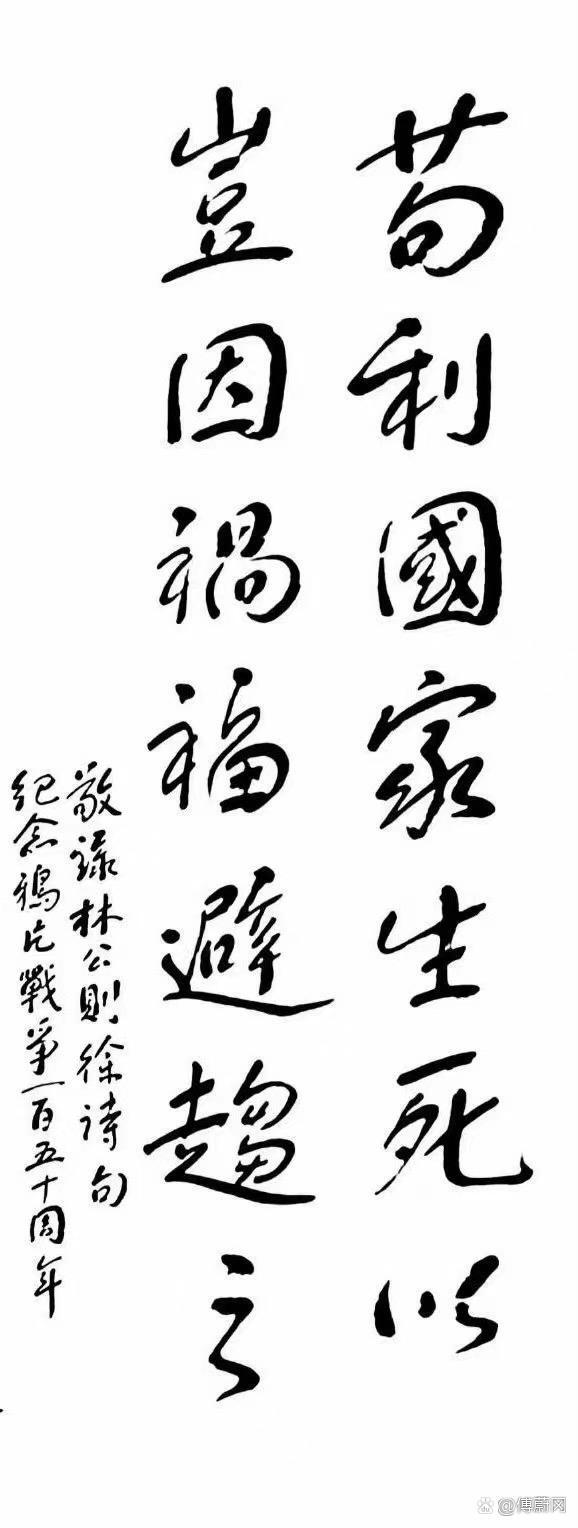 苟利國家生死以
豈因禍福避趨之
敬録林公則徐詩句
紀念鴉片戰爭一百五十周年
@傅蔚网